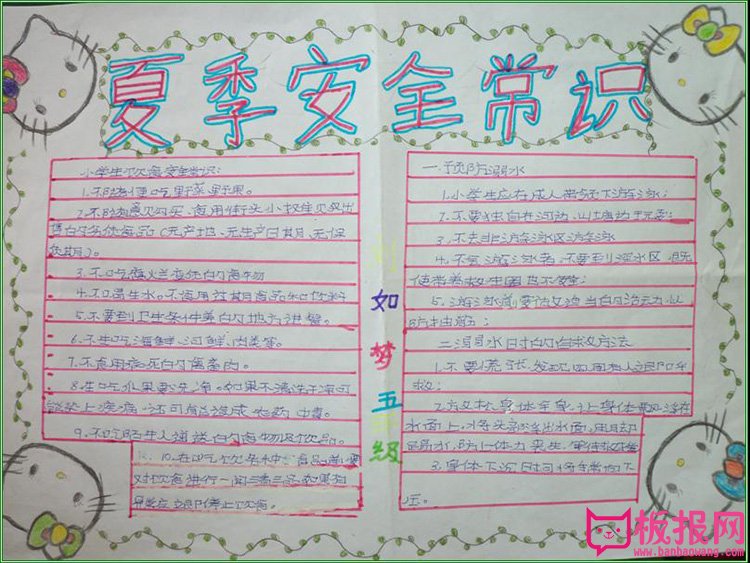 夏季安全常识
小学生饮食安全常识:
1.不随便吃野菜野果。
2.不随意购买、食用街头小摊贩出
售的劣质食品(无产地、无生产日期、无保
质期)。
3.不吃腐烂变质的食物
4.不喝生水。不食用过期食品和饮料
5.不要到卫生条件差的地方进餐。
6.不生吃海鲜、河鲜、肉类等。
7.不食用病死的禽畜肉。
8.生吃水果要洗净。如果不清洗干净可
能染上疾病,还可能造成农药中毒。
9.不吃陌生人递送的食物及饮品。
10.在吃饮条件中食品前,要
对饮食进行一闻二看三品,如果有
异常应立即停止饮食。
如
梦
五
级
一.预防溺水
1.小学生应在成人带领下游泳;
2.不要独自在河边、山塘边玩耍;
3.不去非游泳区游泳
4.不会游泳者,不要到深水区,
使带着救生圈也不安全;
5.游泳前要做适当的活动,以
防抽筋;
二.溺水时的自救方法
1.不要慌张,发现周围有人立即呼
救;
2.放松身体全身,让身体飘浮在
水面上,将头部浮出水面,用脚
踢水,防止体力丧失,等待救援
3.身体下沉时,可将手掌向下
压。
板报网
www.banbaowang.com